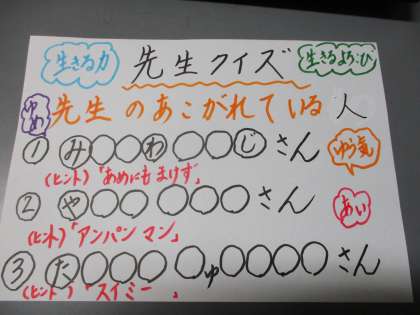 生きる力
先生クイズ
生きるよろこび
ゆめ
先生のあこがれている人
① み○○わ○○じさん
(ヒント)「あめにもまけず」
ゆう気
② や○○○○○○さん
(ヒント)「アンパンマン」
あい
③ た○○○○ゅ○○○○さん
(ヒント)「スイミー」